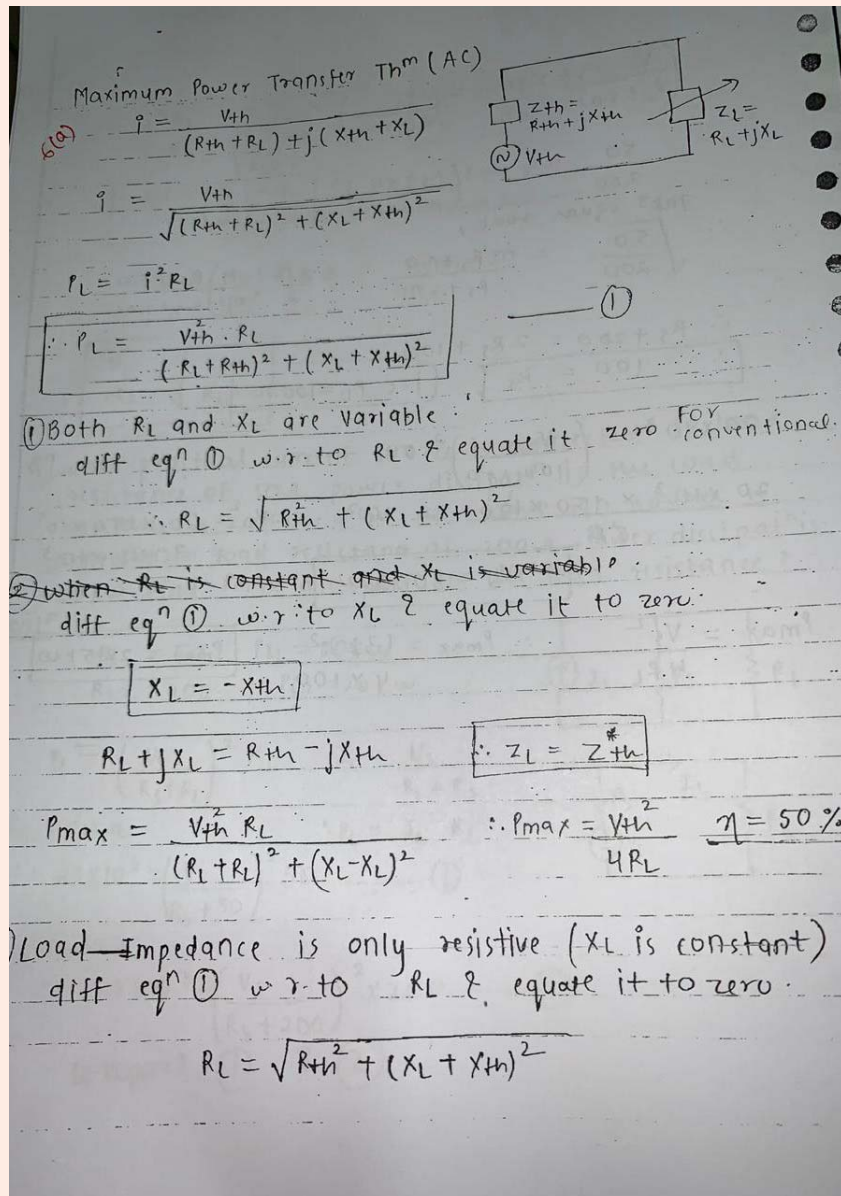 Maximum Power Transfer Thm (AC)
6(a)
i = Vth / (Rth + RL) + j(Xth + XL)
Zth =
Rth + jXth
Vth
ZL =
RL + jXL
i = Vth / √(Rth + RL)² + (XL + Xth)²
PL = i² RL
∴ PL = Vth² . RL / (RL + Rth)² + (XL + Xth)² ——— ①
① Both RL and XL are variable.
diff eqn ① w.r.to RL & equate it zero For conventional.
∴ RL = √Rth² + (XL + Xth)²
② when RL is constant and XL is variable.
diff eqn ① w.r.to XL & equate it to zero.
∴ XL = -Xth
RL + jXL = Rth - jXth ∴ ZL = Z*th
Pmax = Vth² RL / (RL + RL)² + (XL - XL)² ∴ Pmax = Vth² / 4RL η = 50 %
Load Impedance is only resistive (XL is constant)
diff eqn ① w r.to RL & equate it to zero.
RL = √Rth² + (XL + Xth)²